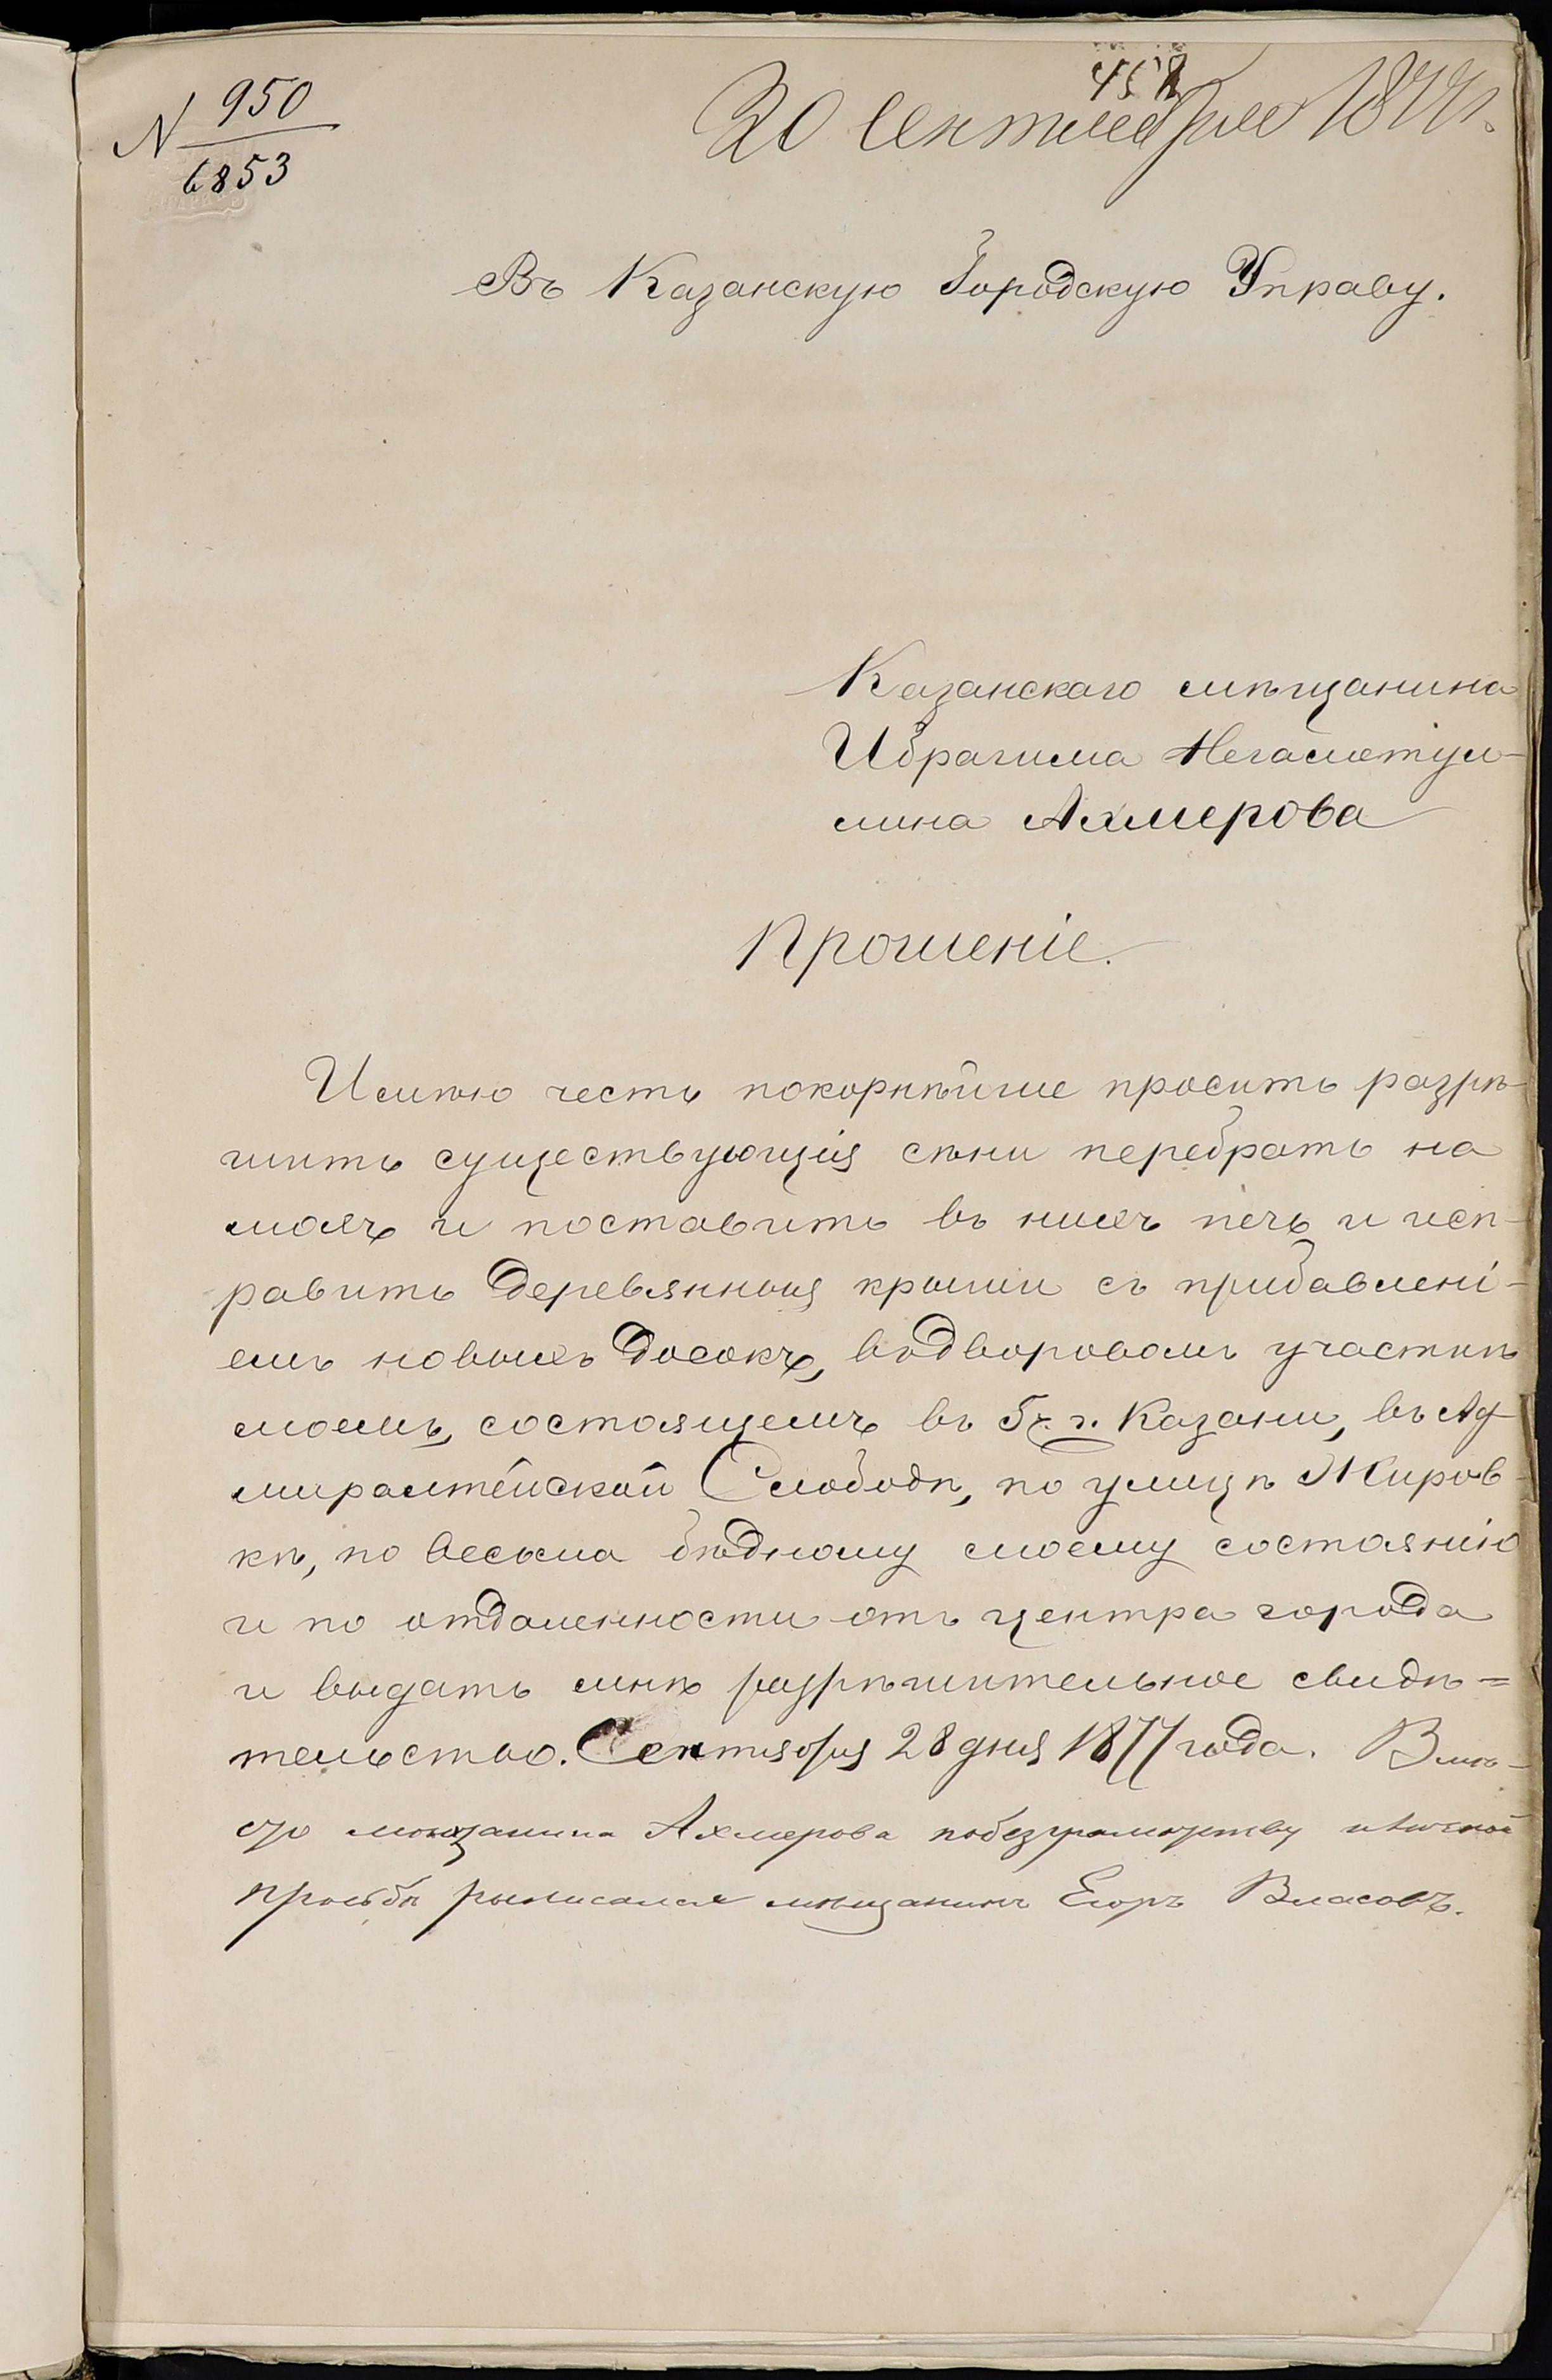 N 950
6853
458
30 Сентября 1877 г.
Въ Казанскую Городскую Управу.
Казанскаго мѣщанина
Ибрагима Негаметул-
лина Ахмерова
Прошеніе.
Имѣю честь покорнѣйше просить разрѣ-
шить существующія сѣни перебрать на
мохъ и поставить въ нихъ печь и исп-
равить деревянныя крыши съ прибавлені-
емъ новыхъ досокъ, въ дворовомъ участкѣ
моемъ, состоящемъ въ 5 ч. г. Казани, въ Ад-
миралтейской Слободѣ, по улицѣ Жиров-
кѣ, по весьма бѣдному моему состоянію
и по отдаленности отъ центра города
и выдать мнѣ разрѣшительное свидѣ=
тельство. Сентября 28 дня 1877 года. Вмѣ-
сто мѣщанина Ахмерова по безграмотству и личной
просьбѣ росписался мѣщанинъ Егоръ Власовъ.